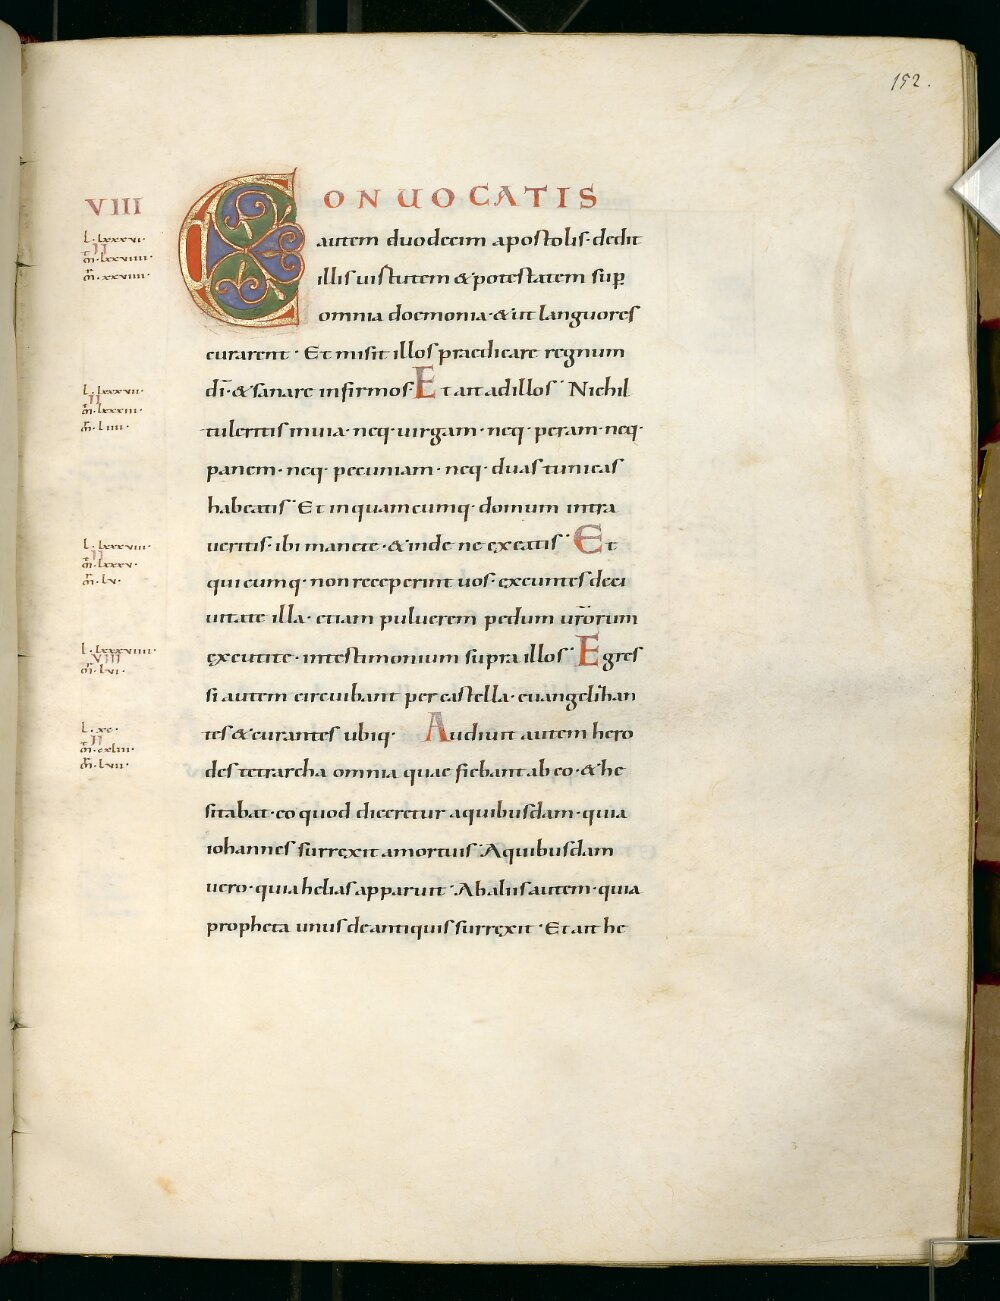 152.
VIII
CONUOCATIS
L · lxxxvi ·
II
m̄ · lxxviiii ·
m̄ · xxviiii ·
autem duodecim apostolis · dedit
illis uirtutem & potestatem sup̄
omnia doemonia · & ut languores
curarent · Et misit illos praedicare regnum
dī · & sanare infirmos Et ait ad illos · Nichil
L · lxxxvii ·
II
m̄ · lxxxiii ·
m̄ · liiii ·
tuleritis in uia · neq · uirgam · neq · peram · neq ·
panem · neq · pecuniam · neq · duas tunicas
habeatis · Et in quamcumq · domum intra
ueritis · ibi manete · & inde ne exeatis · Et
L · lxxxviii ·
II
m̄ · lxxxv ·
m̄ · lv ·
quicumq · non receperint uos · exeuntes de ci
uitate illa · etiam puluerem pedum ur̄orum
excutite · in testimonium supra illos · Egres
L · lxxxviiii ·
VIII
m̄ · lvi ·
si autem circuibant per castella · euangelihan
tes & curantes ubiq · Audiuit autem hero
L · xc ·
II
m̄ · cxliii ·
m̄ · lvii ·
des tetrarcha omnia quae fiebant ab eo · & he
sitabat · eo quod diceretur a quibusdam · quia
iohannes surrexit a mortuis · A quibusdam
uero · quia helias apparuit · Ab aliis autem · quia
propheta unus de antiquis surrexit · Et ait he